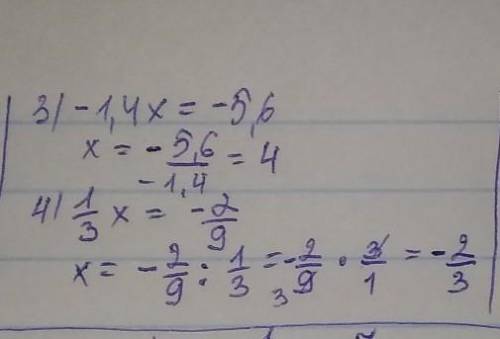 3) -1,4x = -5,6
x = - 5,6/-1,4 = 4
4) 1/3 x = -2/9
x = - 2/9 : 1/3 = - 2/9 3 · 3/1 = - 2/3